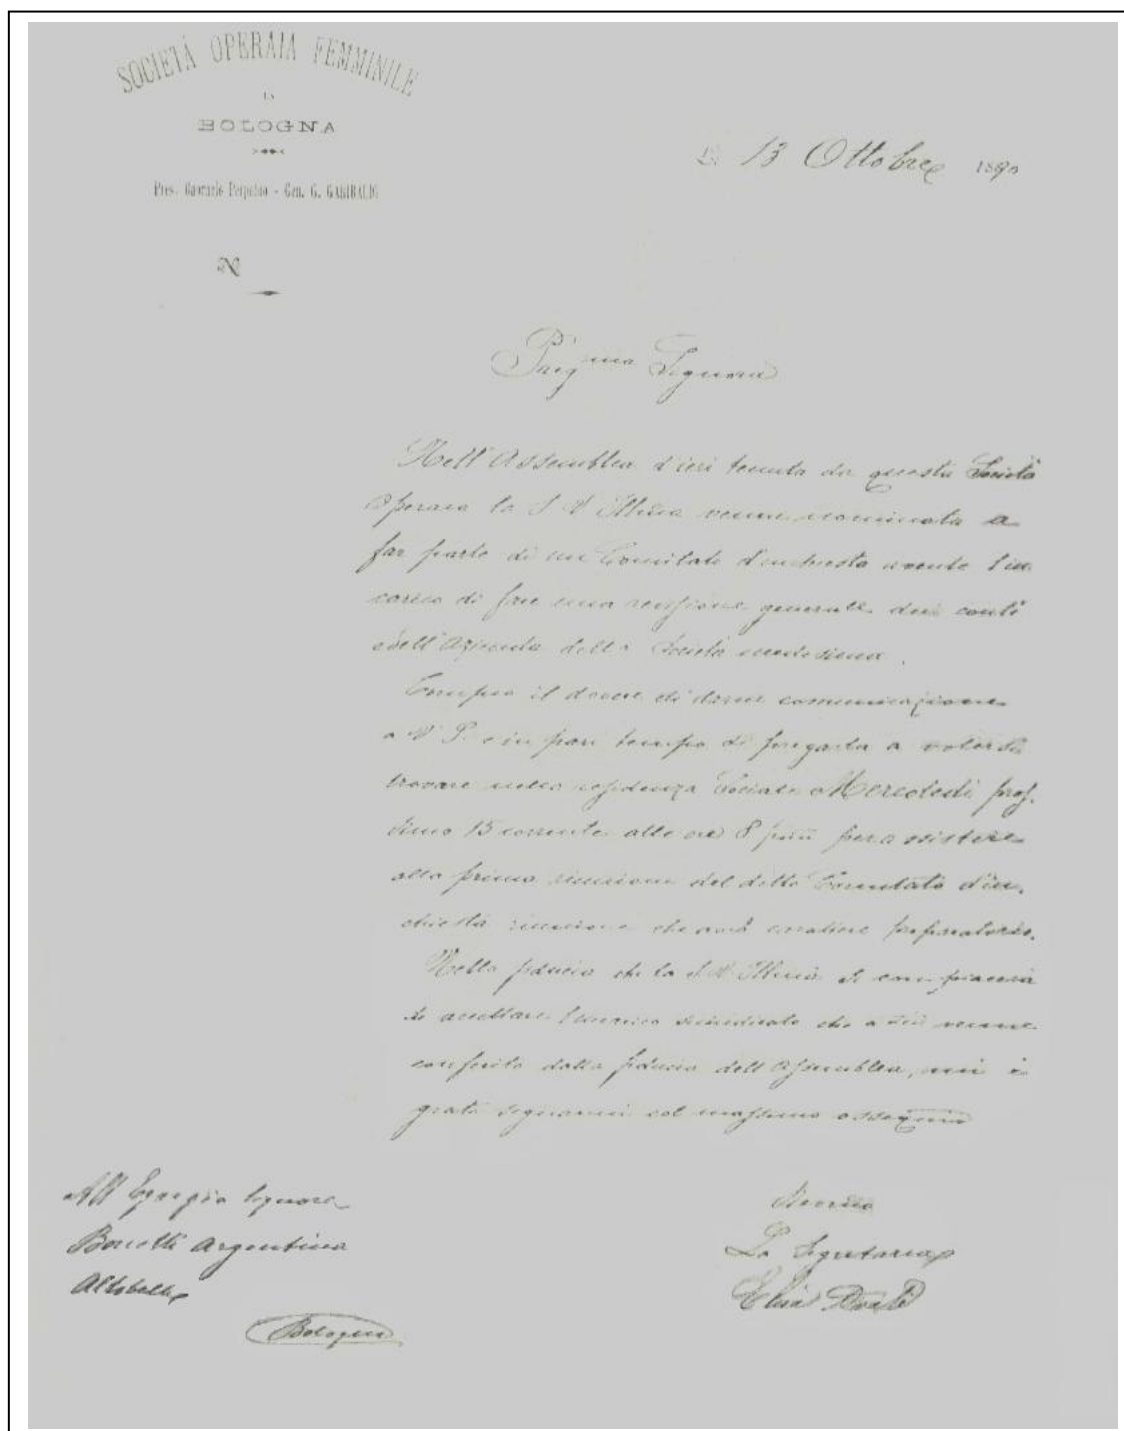 SOCIETÀ OPERAIA FEMMINILE
DI
BOLOGNA
Pres. Onorario Perpetuo - Gen. G. GARIBALDI
Lì 13 Ottobre 1890
N
Preg.ma Signora
Nell'Assemblea d'ieri tenuta da questa Società
Operaia la S. V. Ill.ma venne nominata a
far parte di un Comitato d'inchiesta avente l'in
carico di fare una revisione generale dei conti
e dell'Azienda della Società medesima.
Compio il dovere di darne comunicazione
a V. S. e in pari tempo di pregarla a volersi
trovare nella residenza Sociale Mercoledì pros.
simo 15 corrente alle ore 8 pom per assistere
alla prima riunione del detto Comitato d'in.
chiesta riunione che avrà carattere preparatorio.
Nella fiducia che la S. V. Ill.ma si compiacerà
di accettare l'incarico che a Lei venne
conferito dalla fiducia dell'Assemblea, mi è
grato segnarmi col massimo ossequio
All'Egregia Signora
Bonetti Argentina
Altobelli
Bologna
La Segretaria